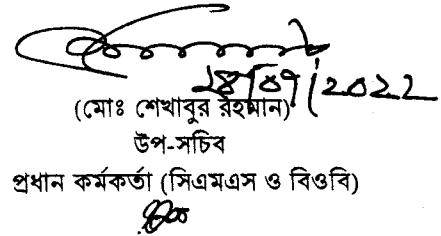 ২৪/০৭/২০২২
(মোঃ শেখাবুর রহমান)
উপ-সচিব
প্রধান কর্মকর্তা (সিএমএস ও বিওবি)